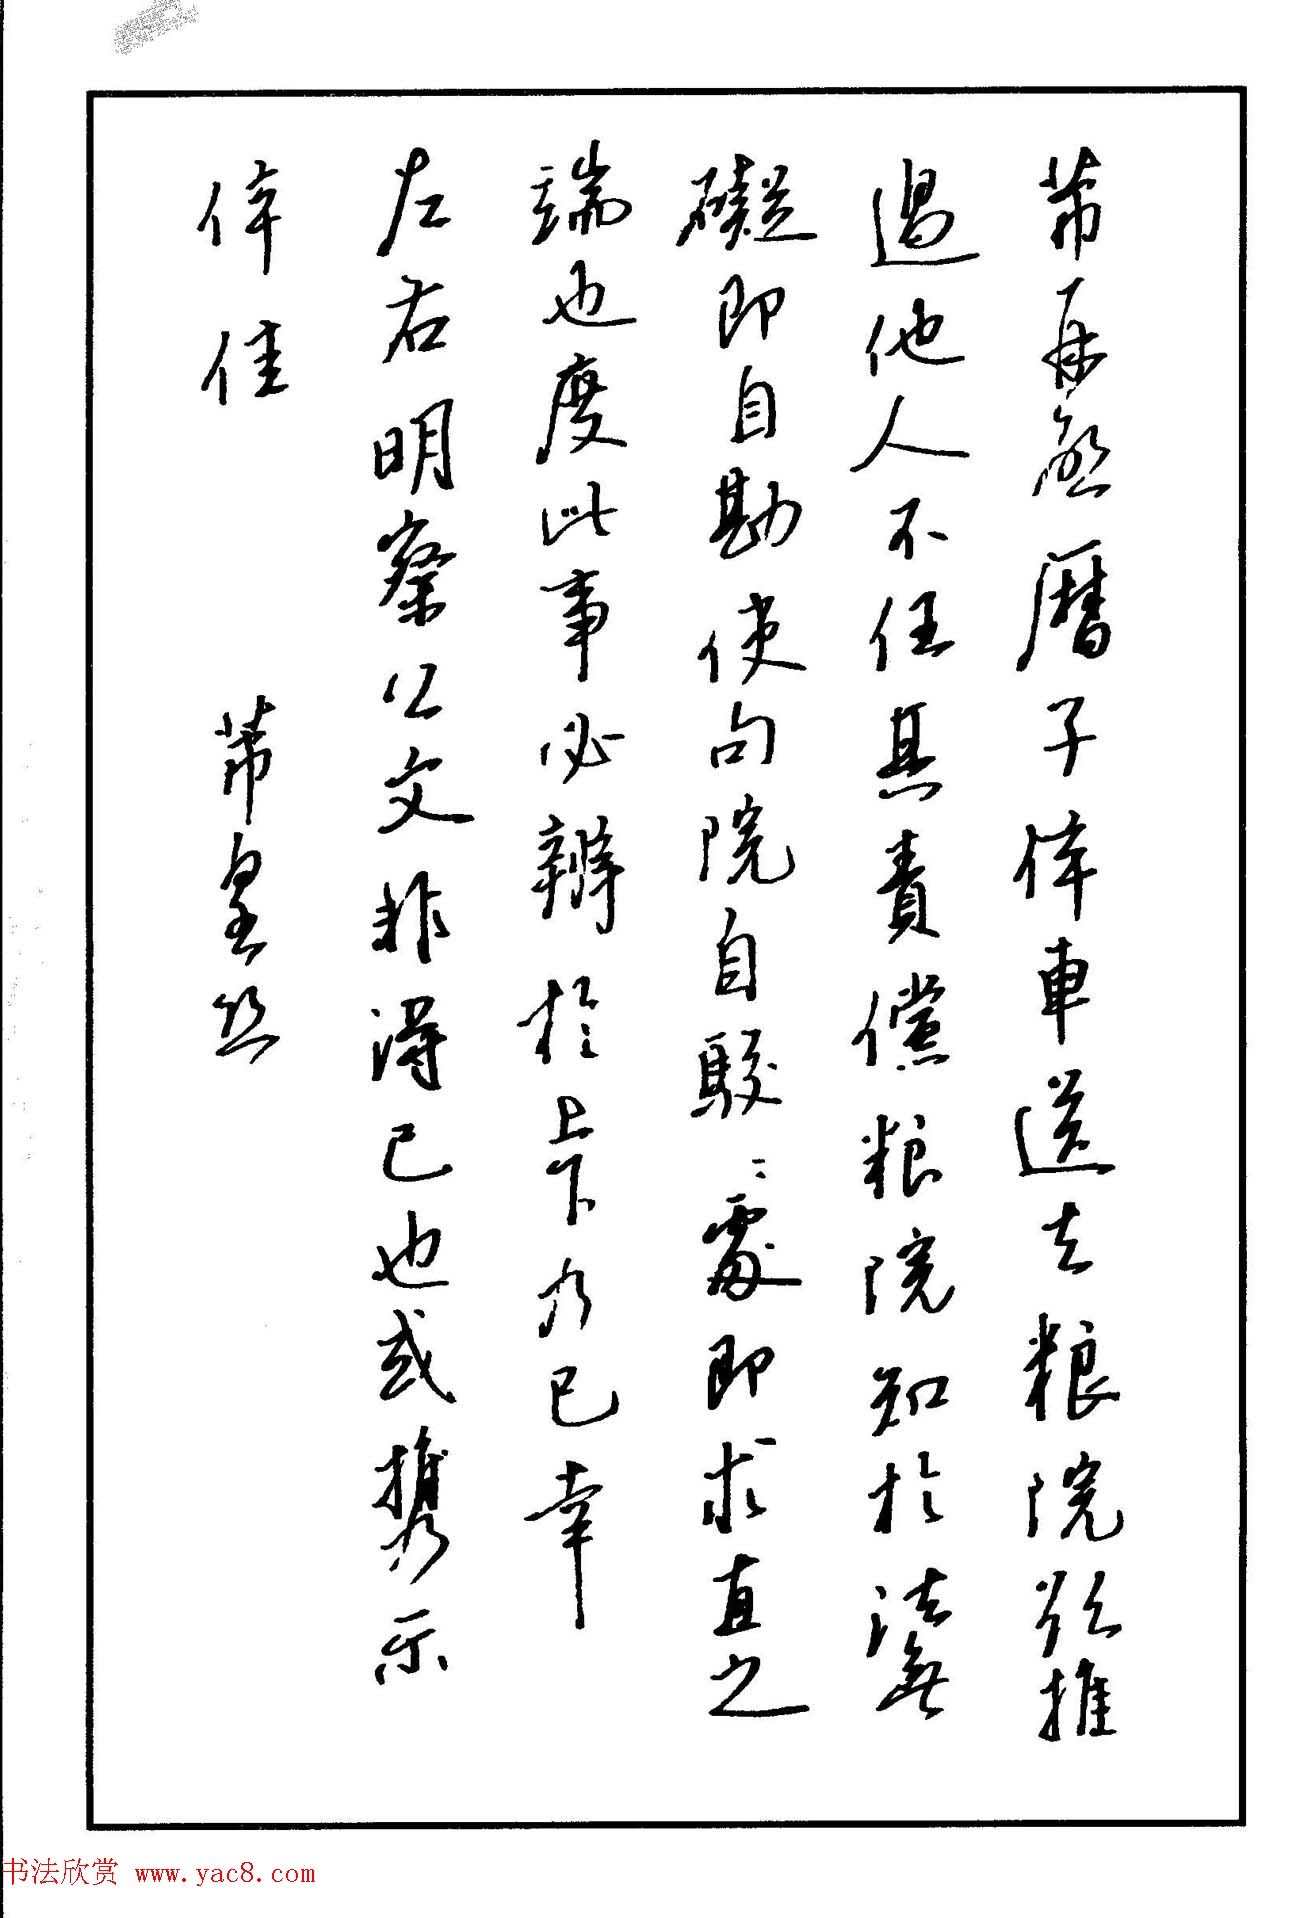 芾再启曆子倅車送去粮院欲推
過他人不任其責儻粮院知於法無
礙即自勘使句院自駁二處即求直之
端也度此事必辨於上下乃已幸
左右明察公文非得已也或携示
倅佳
芾皇恐
书法欣赏 www.yac8.com